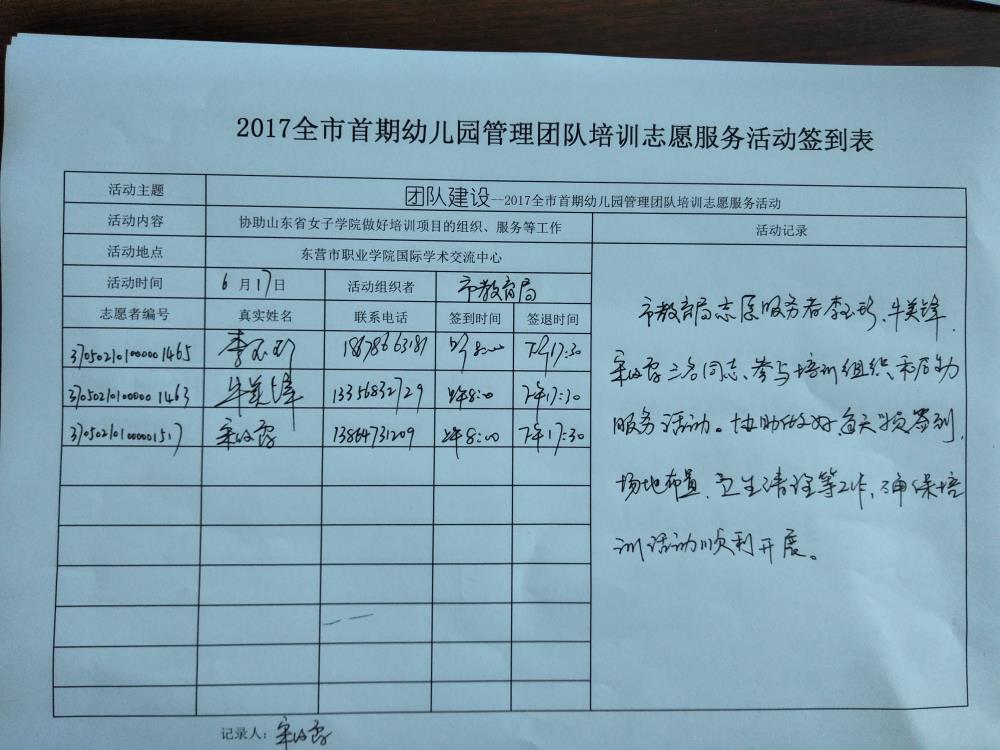 2017全市首期幼儿园管理团队培训志愿服务活动签到表
活动主题 团队建设--2017全市首期幼儿园管理团队培训志愿服务活动
活动内容 协助山东省女子学院做好培训项目的组织、服务等工作 活动记录
活动地点 东营市职业学院国际学术交流中心
活动时间 6月17日 活动组织者 市教育局
志愿者编号 真实姓名 联系电话 签到时间 签退时间
370502101000001465 李玉珍 18678663181 上午8:00 下午17:30
370502101000001463 牛美锋 13356832729 上午8:00 下午17:30
370502101000001517 13864731209 上午8:00 下午17:30
市教育局志愿服务者李玉珍、牛美锋、
三名同志,参与培训组织和后勤
服务活动。协助做好每天学员签到,
场地布置、卫生清理等工作,确保培
训活动顺利开展。
记录人: